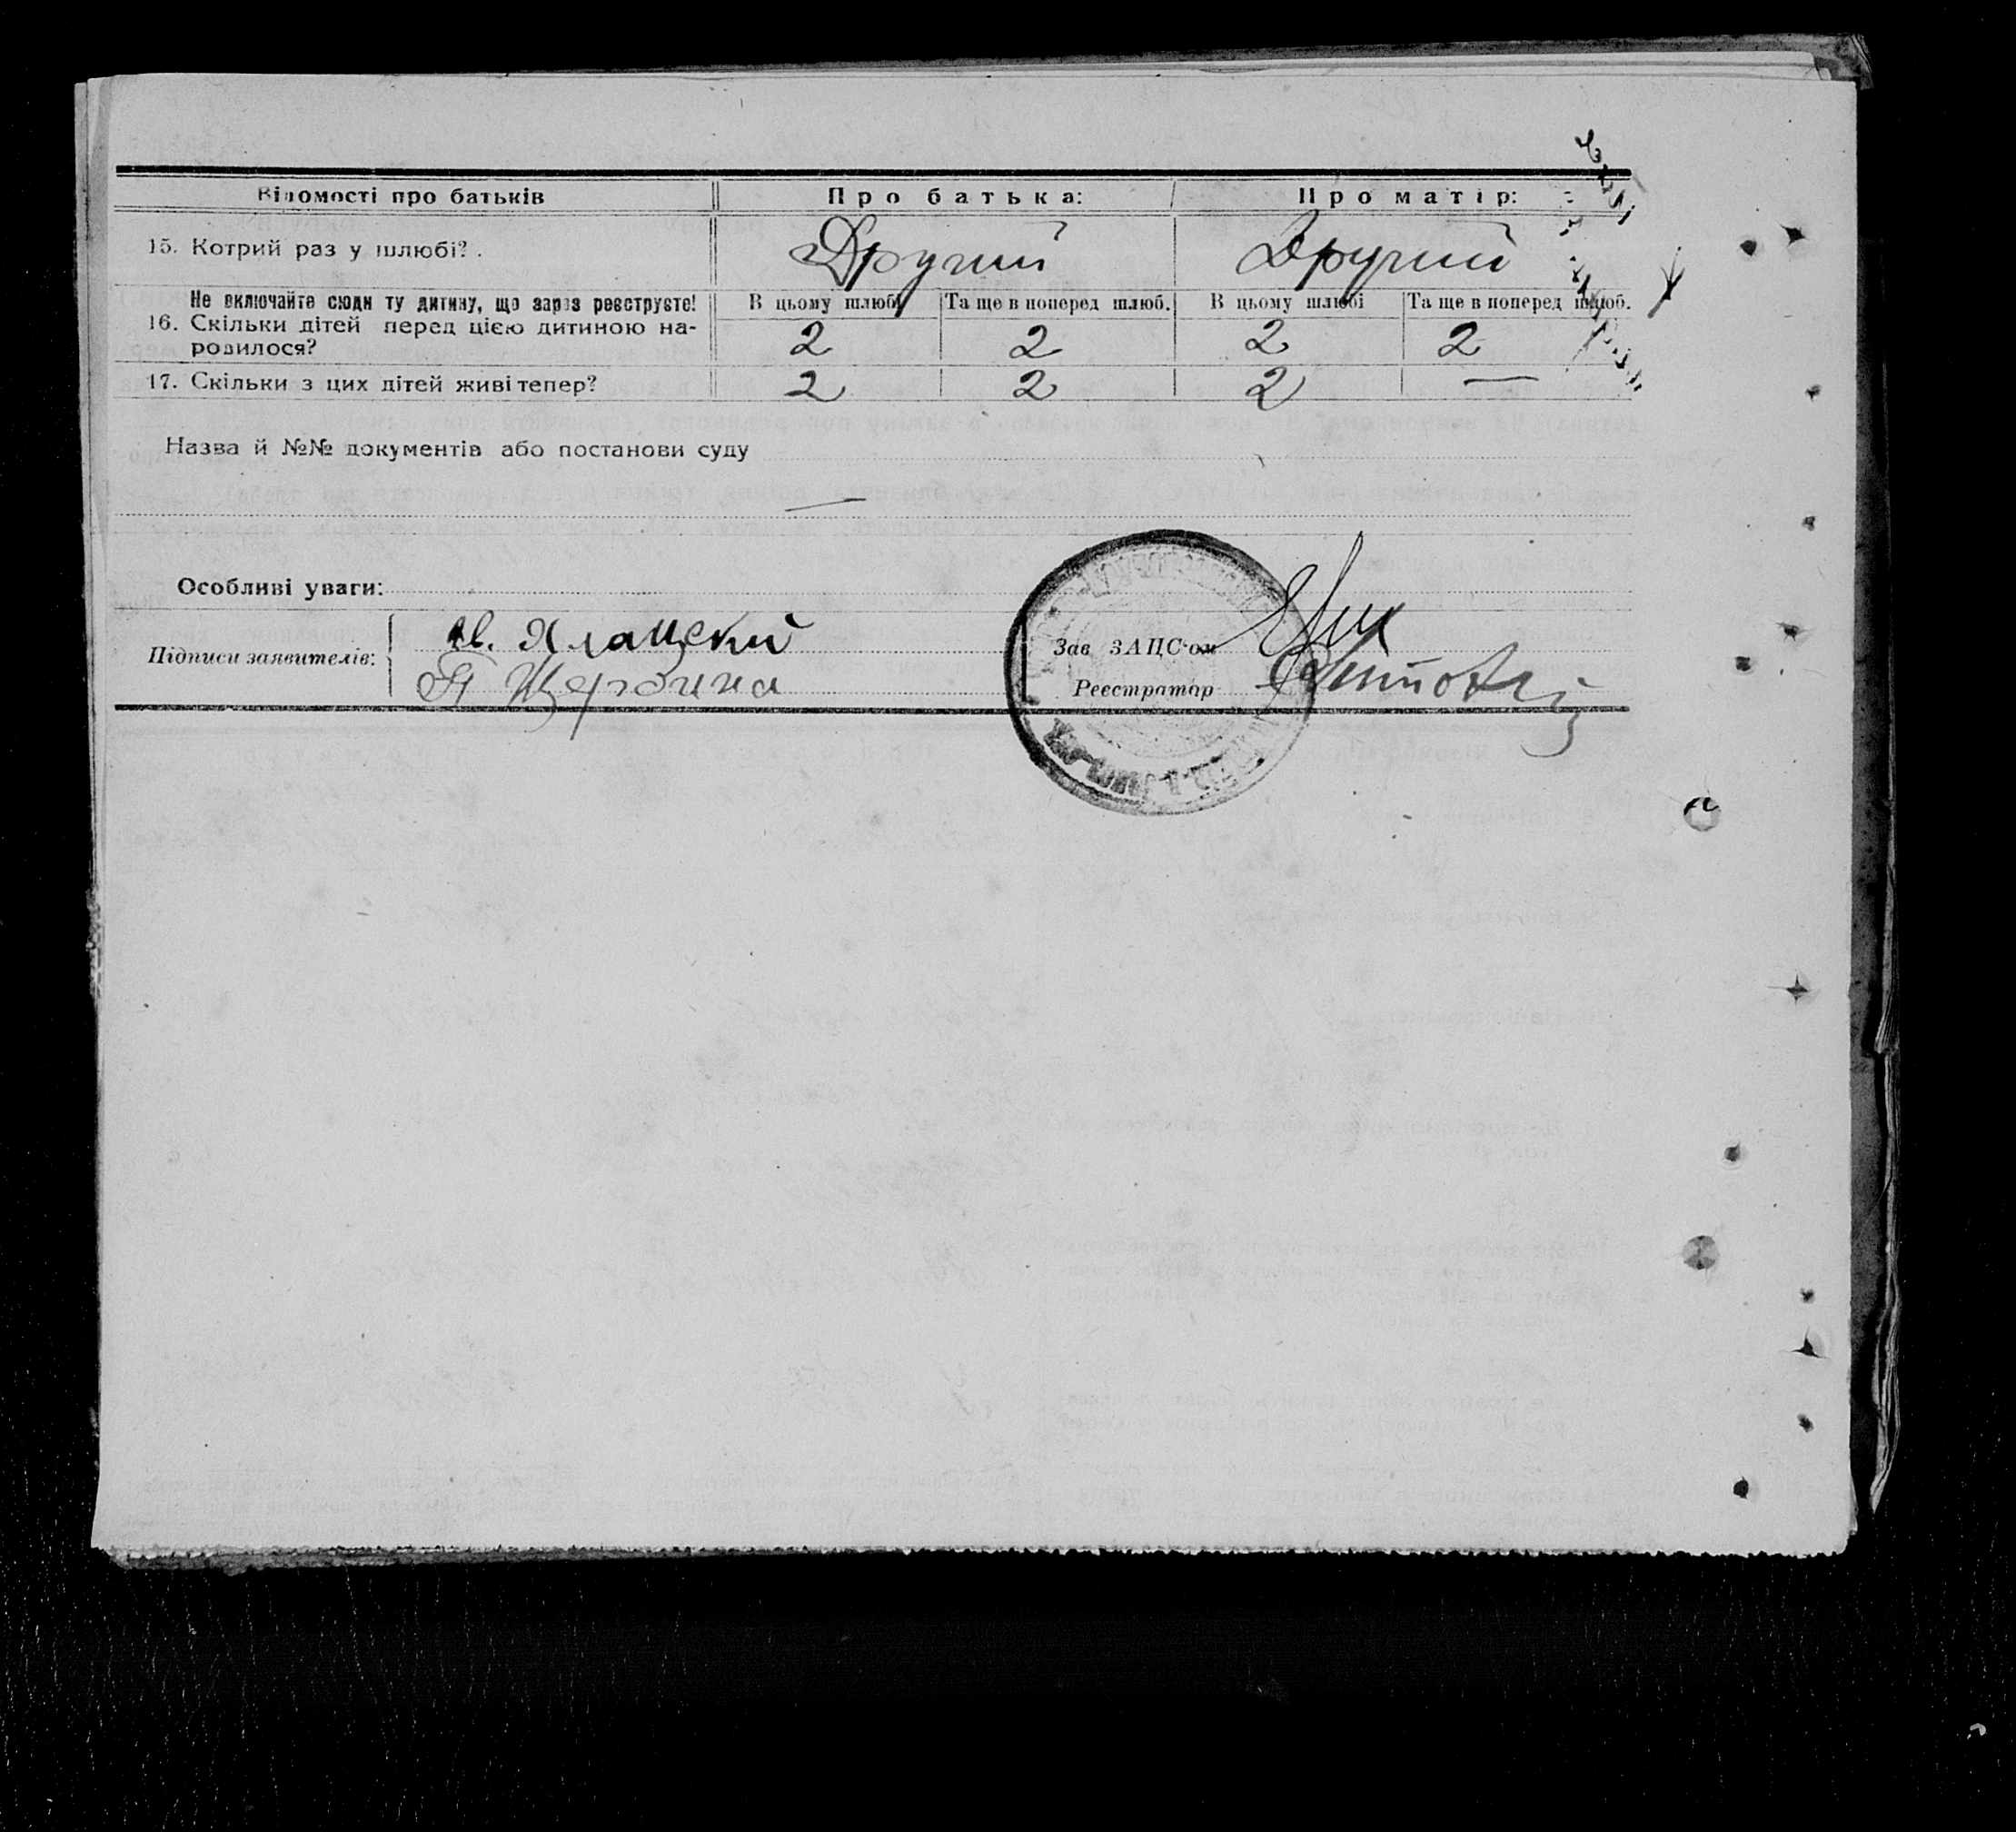 Відомості про батьків Про батька: Про матір:
15. Котрий раз у шлюбі? . Другий Другий
Не включайте сюди ту дитину, що зараз реєструєте! В цьому шлюбі Та ще в поперед шлюб. В цьому шлюбі Та ще в поперед шлюб.
16. Скільки дітей перед цією дитиною на-
родилося? 2 2 2 2
17. Скільки з цих дітей живі тепер? 2 2 2 —
Назва й №№ документів або постанови суду
—
Особливі уваги:
Підписи заявителів:
Зав ЗАЦС'ом
Щербина
Реєстратор